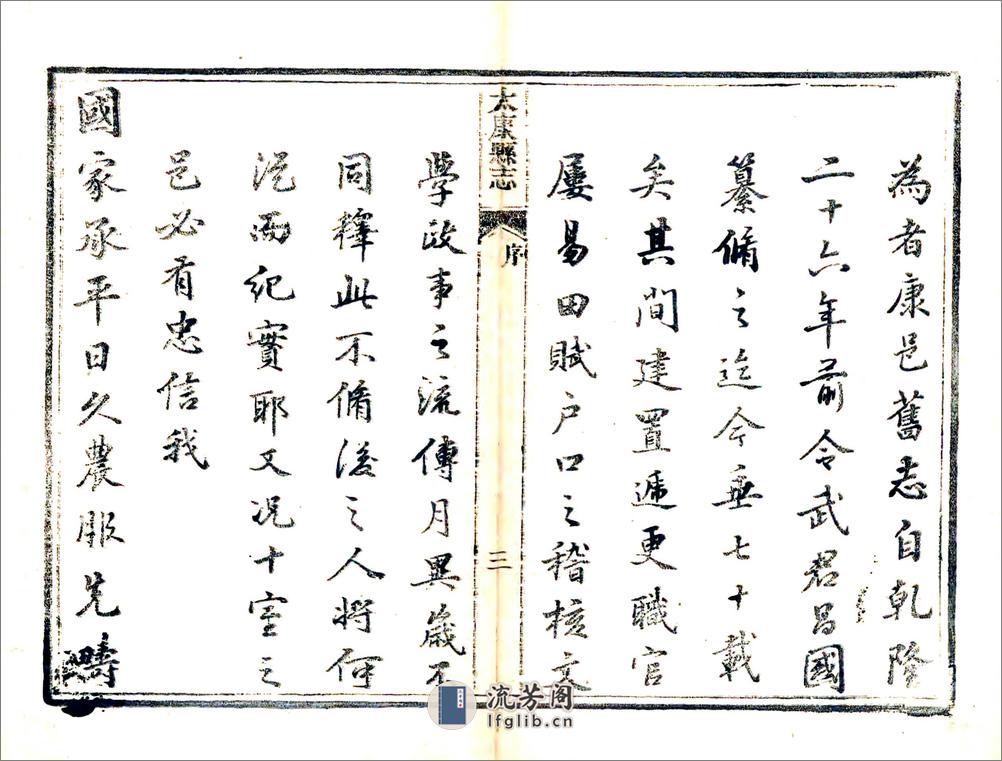 為者康邑舊志自乾隆
二十六年前令武君昌國
纂脩之迄今垂七十載
矣其間建置遞更職官
屢易田賦户口之稽核文
太康縣志
序
三
學政事之流傳月異歲不
同釋此不脩後之人將何
從而紀實耶又況十室之
邑必有忠信我
國家承平日久農服先疇
流芳阁
lfglib.cn